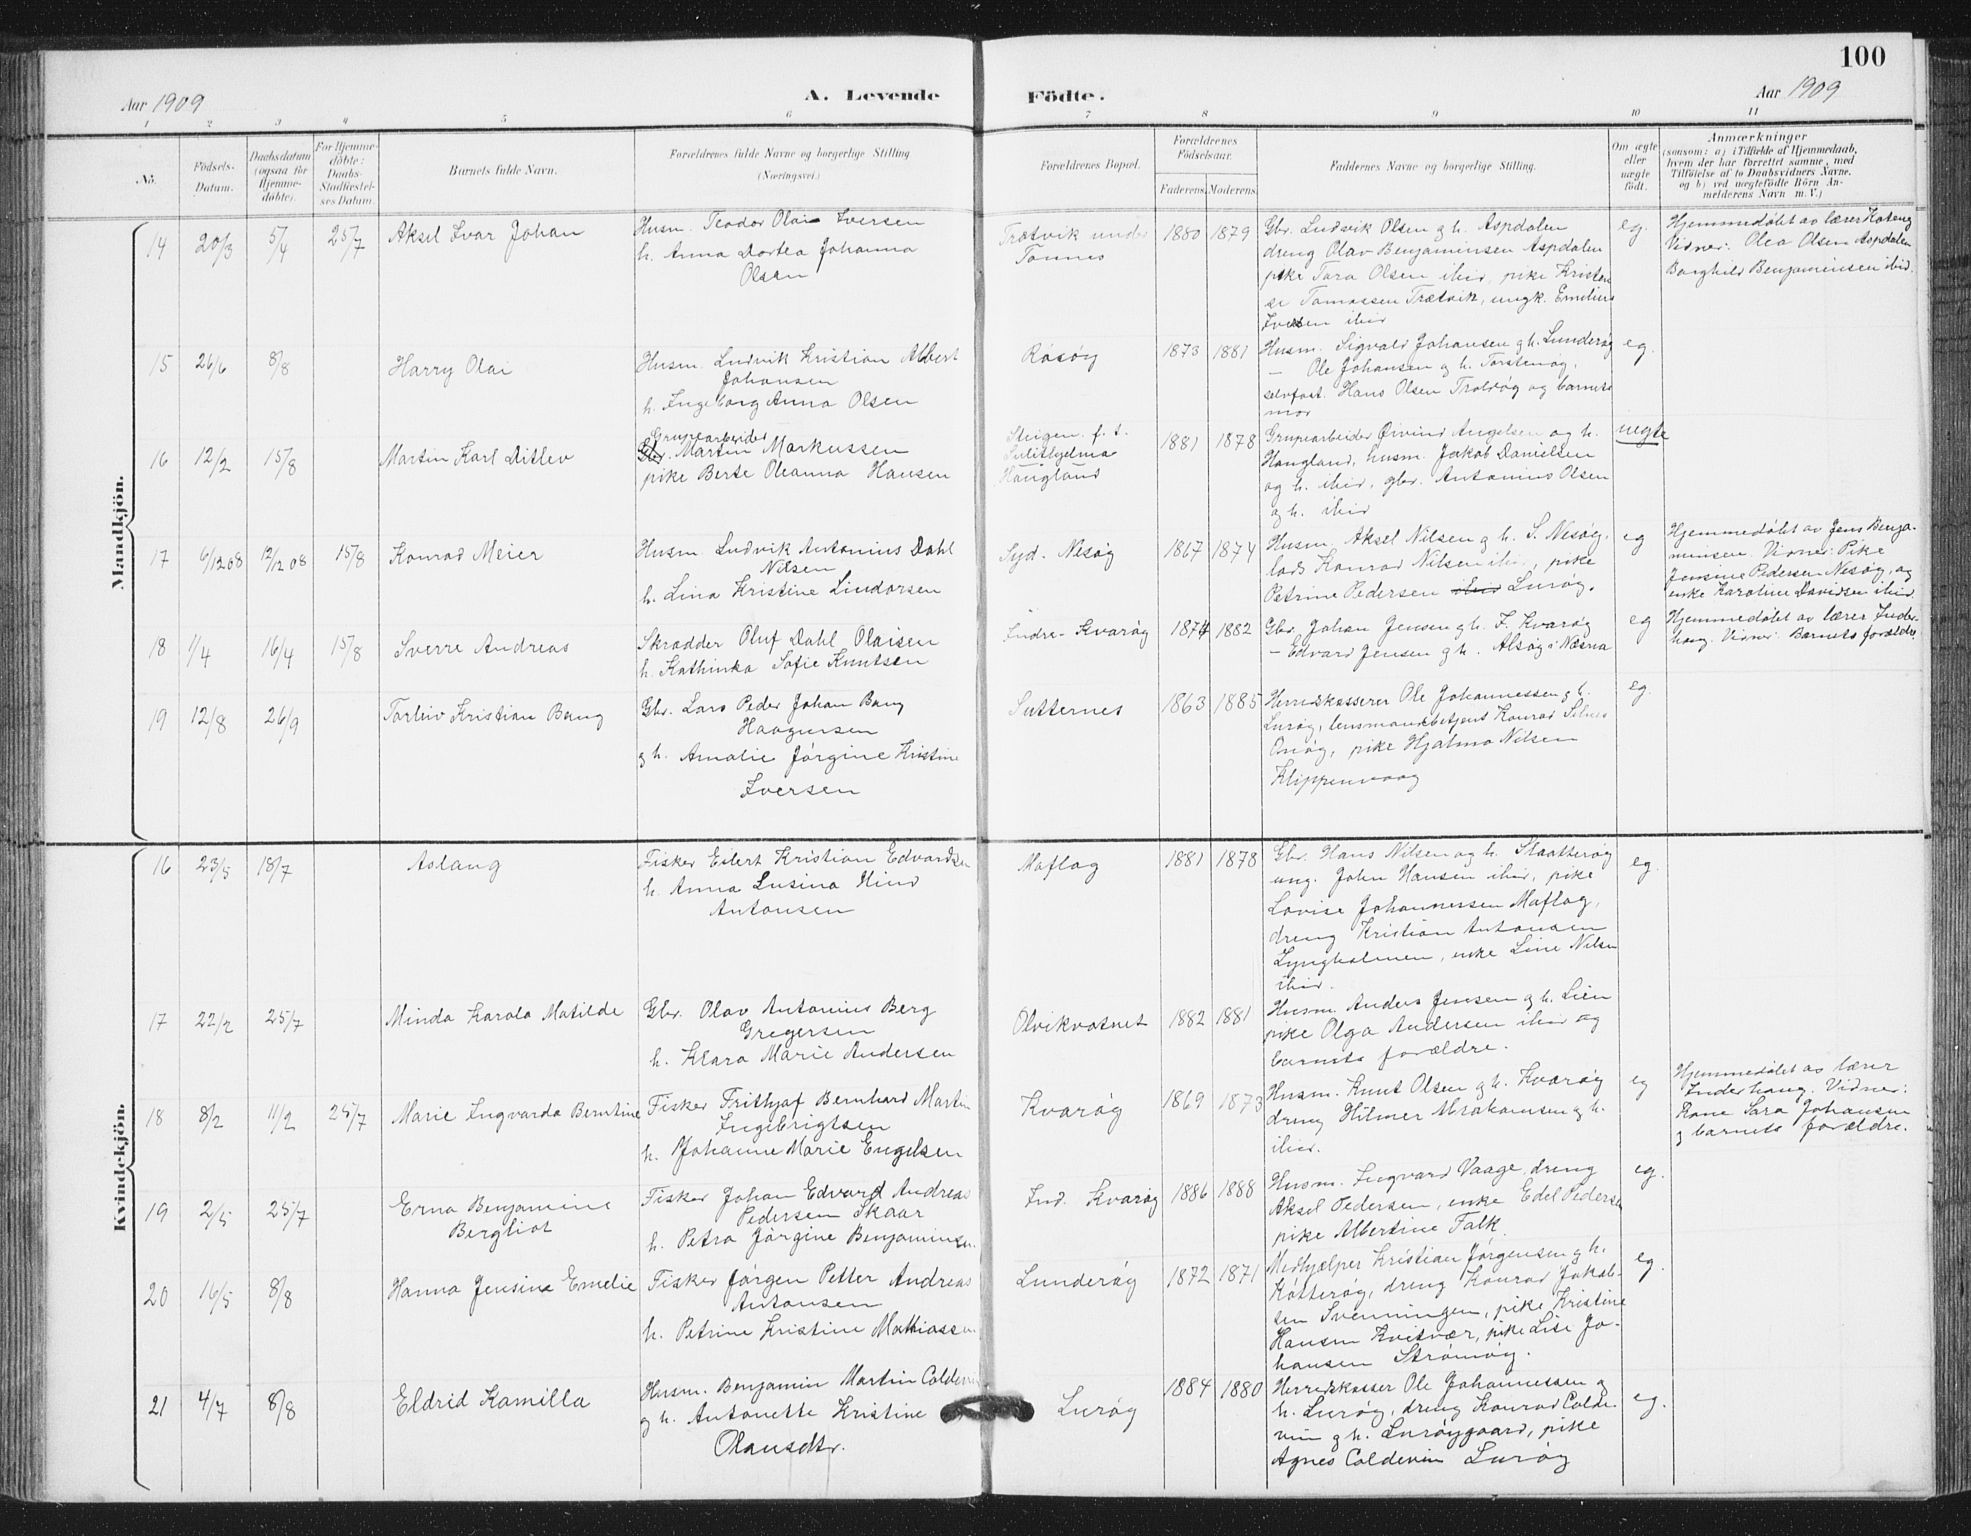 100
Aar 1909
A. Levende
Födte.
Aar 1909
1 2 3 4 5 6 7 8 9 10 11
No.
Födsels-
Datum.
Daabsdatum
(ogsaa for
Hjemme-
döbte).
For Hjemme-
döbte:
Daabs-
Stadfæstel-
ses Datum.
Barnets fulde Navn.
Forældrenes fulde Navne og borgerlige Stilling
(Næringsvei.)
Forældrenes Bopæl.
Forældrenes
Födselsaar.
Faderens. Moderens.
Faddernes Navne og borgerlige Stilling.
Om ægte
eller
uægte
födt.
Anmærkninger
(saasom: a) i Tilfælde af Hjemmedaab,
hvem der har forrettet samme, med
Tilföielse af to Daabsvidners Navne.
og b) ved uægtefödte Börn An-
melderens Navn m. V.)
Mandkjön.
14 20/3 5/4 25/7 Aksel Ivar Johan
Husm. Teodor Olai Iversen
h. Anna Dortea Johanna
Olsen
Trætvik under
Tonnes
1880 1879
Gbr. Ludvik Olsen g h. Aspdalen
dreng Olav Benjaminsen Aspdalen
pike Tara Olsen ibid, pike Kristen
se Tomassen Trætvik, ungk. Emilius
Iversen ibid
eg.
Hjemmedøbt av lærer Hoteng
Vidner: Olea Olsen Aspdalen
Borghild Benjaminsen ibid.
15 26/6 8/8 Harry Olai
Husm. Ludvik Kristian Albert
Johansen
h. Ingeborg Anna Olsen
Råsøy
1873 1881
Husm. Sigvald Johansen g h. Lunderøy
— Ole Johansen g h. Torstenøy.
selvfost. Hans Olsen Troldøy og barnets
mor
eg.
16 12/2 15/8 Martin Karl Ditlev
Grupearbeider
Gbr. Martin Markussen
pike Berte Oleanna Hansen
Steigen. f. t.
Sulithjelma
Haugland
1881 1878
Grupearbeider Øivind Angelsen og h.
Haugland, husm. Jakob Danielsen
og h. ibid, gbr. Antonius Olsen
og h. ibid
uegte
17 6/12 08 12/12 08 15/8 Konrad Meier
Husm. Ludvik Antonius Dahl
Nilsen
h. Lina Kristine Lindorsen
Syd. Nesøy
1867 1874
Husm. Aksel Nilsen g h. S. Nesøy,
lads Konrad Nilsen ibid, pike
Petrine Pedersen ibid Lurøy.
eg
Hjemmedøbt av Jens Benja-
minsen. Vidner: Pike
Jensine Pedersen Nesøy, og
enke Karoline Davidsen ibid.
18 1/4 16/4 15/8 Sverre Andreas
Skrædder Oluf Dahl Olaisen
h. Kathinka Sofie Knutsen
Indre-Kvarøy
1874 1882
Gbr. Johan Jensen g h. I. Kvarøy
— Edvard Jensen g h. Alsøy i Næsna
eg
Hjemmedøbt av lærer Inder-
haug. Vidner: Barnets forældre.
19 12/8 26/9 Torleiv Kristian Bang
Gbr. Lars Peder Johan Bang
Haagensen
g h. Amalie Jørgine Kristine
Iversen
Sutternes
1863 1885
Herredskasserer Ole Johannessen g h.
Lurøy, lensmandsbetjent Konrad Silnes
Onøy, pike Hjalma Nilsen
Klippenvaag
eg.
Kvindekjön.
16 23/5 18/7 Aslaug
Fisker Eilert Kristian Edvardsen
h. Anna Lusina Hind
Antonsen
Moflag
1881 1878
Gbr. Hans Nilsen og h. Slaatterøy
ung. John Hansen ibid, pike
Lovise Johannessen Moflag,
dreng Kristian Antonsen
Lyngholmen, enke Line Nilsen
ibid.
eg.
17 22/2 25/7 Minda Karola Matilde
Gbr. Olav Antonius Berg
Gregersen
h. Klara Marie Andersen
Olvikvatnet
1882 1881
Husm. Anders Jensen g h. Lien
pike Olga Andersen ibid og
barnets forældre.
18 8/2 11/2 25/7 Marie Ingvarda Berntine
Fisker Frithjof Bernhard Martin
Ingebrigtsen
h. Johanne Marie Engelsen
Kvarøy
1869 1873
Husm. Knut Olsen g h. Kvarøy
dreng Hilmer Abrahamsen g h.
ibid.
eg
Hjemmedøbt av lærer
Inderhaug. Vidner:
Kone Sara Johansen
g barnets forældre.
19 2/5 25/7 Erna Benjamine
Bergliot
Fisker Johan Edvard Andreas
Pedersen Skaar
h. Petra Jørgine Benjaminsen.
Ind. Kvarøy
1886 1888
Husm. Ingvard Vaage, dreng
Aksel Pedersen, enke Edel Pedersen
pike Albertine Falk.
eg.
20 16/5 8/8 Hanna Jensine Emelie
Fisker Jørgen Petter Andreas
Antonsen
h. Petrine Kristine Mathiassen.
Lunderøy
1872 1871
Medhjælper Kristian Jørgensen g h.
Kåtterøy, dreng Konrad Jakob-
sen Svenningen, pike Kristine
Hansen Kvitvær, pike Lise Jo-
hansen Strømøy.
eg.
21 4/7 8/8 Eldrid Kamilla
Husm. Benjamin Martin Coldevin
g h. Antonette Kristine
Olausdtr.
Lurøy
1884 1880
Herredskasser Ole Johannessen g
h. Lurøy, dreng Konrad Colde-
vin g h. Lurøygaard, pike
Agnes Coldevin Lurøy
eg.